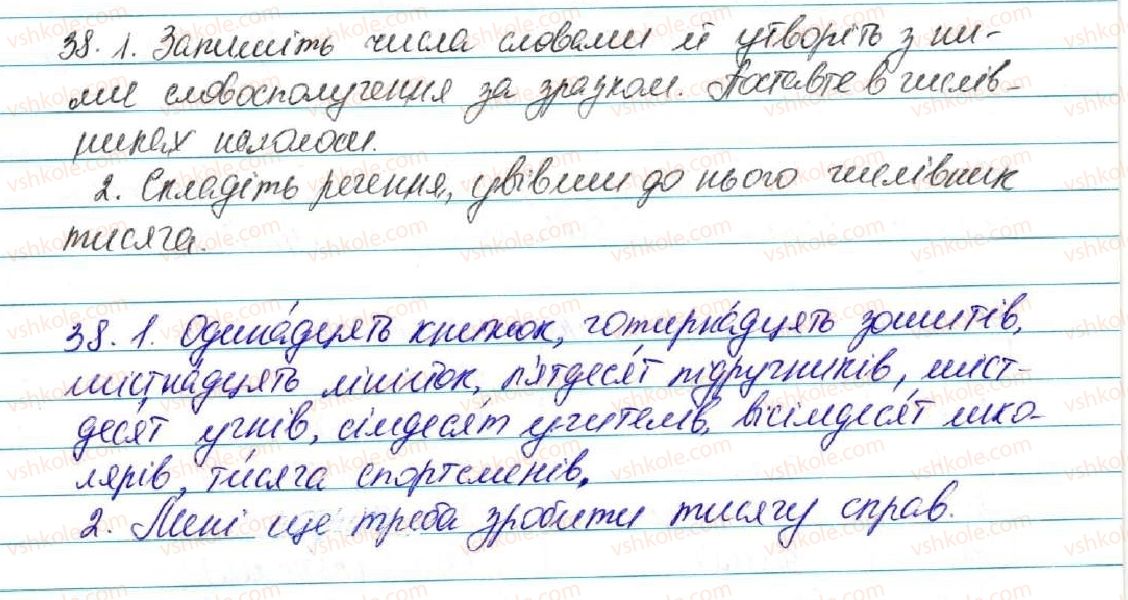 38. 1. Запишіть числа словами й утворіть з ни-
ми словосполучення за зразком. Поставте в числів-
никах наголоси.
2. Складіть речення, увівши до нього числівник
тисяча.
38. 1. Одина́дцять книжок, чотирна́дцять зошитів,
шістна́дцять лінійок, п'ятдеся́т підручників, шіст-
деся́т учнів, сімдеся́т учителів, вісімдеся́т шко-
лярів, ти́сяча спортсменів.
2. Мені ще треба зробити тисячу справ.